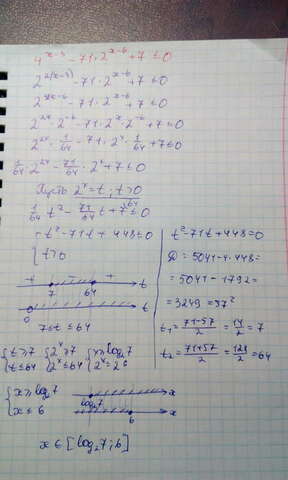 4^(x-3) - 71·2^(x-6) + 7 ≤ 0
2^(2(x-3)) - 71·2^(x-6) + 7 ≤ 0
2^(2x-6) - 71·2^(x-6) + 7 ≤ 0
2^(2x)·2^(-6) - 71·2^x·2^(-6) + 7 ≤ 0
2^(2x)·1/64 - 71·2^x·1/64 + 7 ≤ 0
1/64·2^(2x) - 71/64·2^x + 7 ≤ 0
Пусть 2^x = t, t > 0
1/64 t² - 71/64 t + 7 ≤ 0
t² - 71t + 448 ≤ 0
t > 0
+ - + t
7 64
0 t
7 ≤ t ≤ 64
t² - 71t + 448 = 0
D = 5041 - 4·448 =
= 5041 - 1792 =
= 3249 = 57²
t₁ = (71-57)/2 = 14/2 = 7
t₂ = (71+57)/2 = 128/2 = 64
{t ≥ 7 {2^x ≥ 7 {x ≥ log₂7
t ≤ 64 2^x ≤ 64 2^x ≤ 2^6
{x ≥ log₂7
x ≤ 6
log₂7 x
6 x
x ∈ [log₂7; 6]